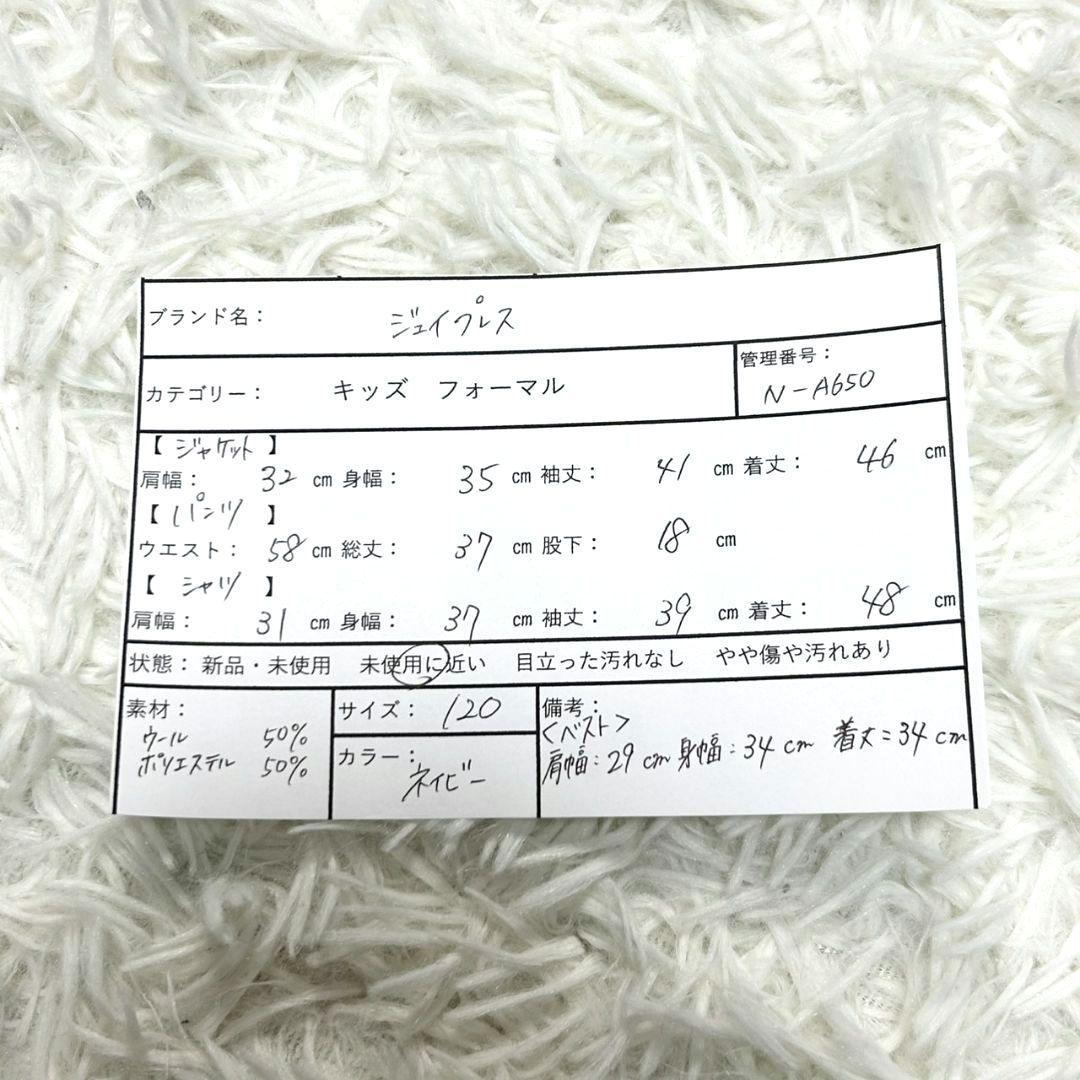 ブランド名： ジェイプレス
カテゴリー： キッズ フォーマル
管理番号：
N-A650
【 ジャケット 】
肩幅： 32 cm 身幅： 35 cm 袖丈： 41 cm 着丈： 46 cm
【 パンツ 】
ウエスト： 58 cm 総丈： 37 cm 股下： 18 cm
【 シャツ 】
肩幅： 31 cm 身幅： 37 cm 袖丈： 39 cm 着丈： 48 cm
状態： 新品・未使用 未使用に近い 目立った汚れなし やや傷や汚れあり
素材：
ウール 50%
ポリエステル 50%
サイズ： 120
カラー： ネイビー
備考：
<ベスト>
肩幅：29 cm 身幅：34 cm 着丈=34 cm